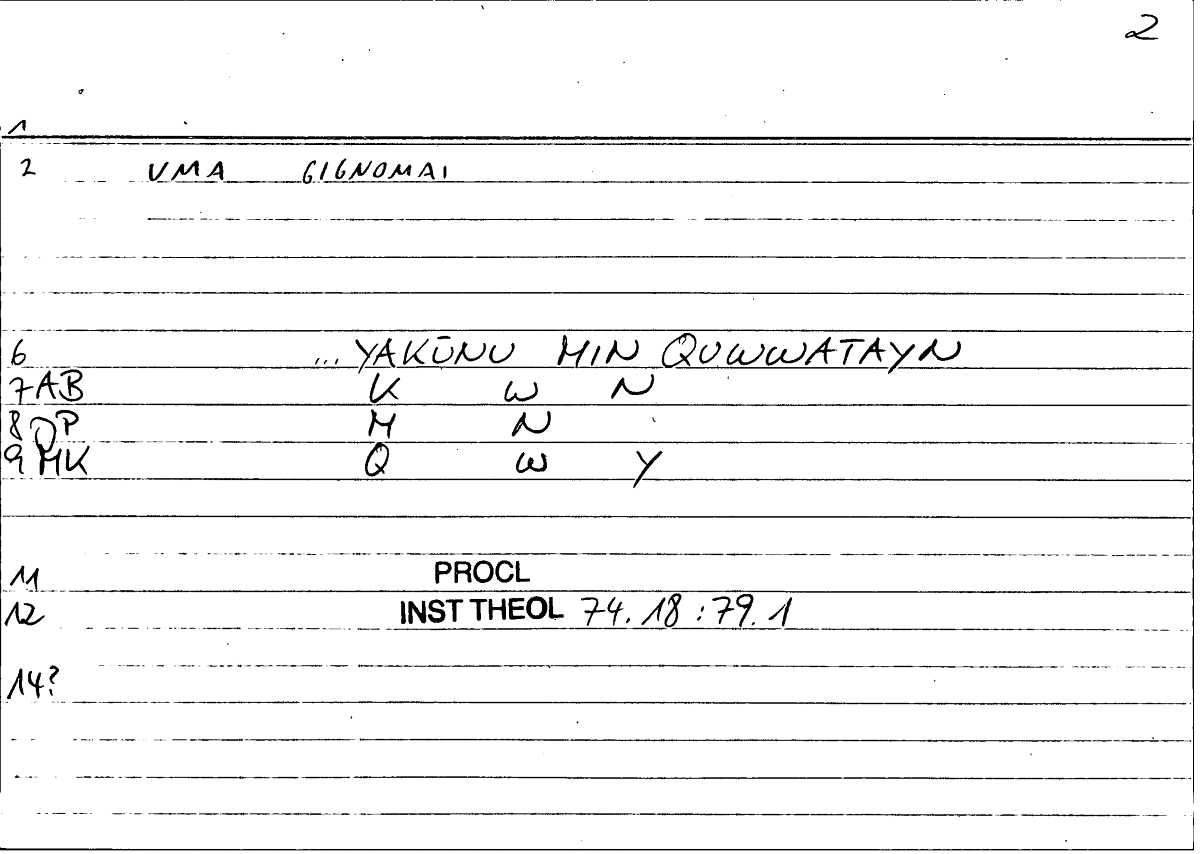 2
1
2 VMA GIGNOMAI
6 ... YAKŪNU MIN QUWWATAYN
7AB K W N
8QP M N
9MK Q W Y
11 PROCL
12 INST THEOL 74.18:79.1
14?